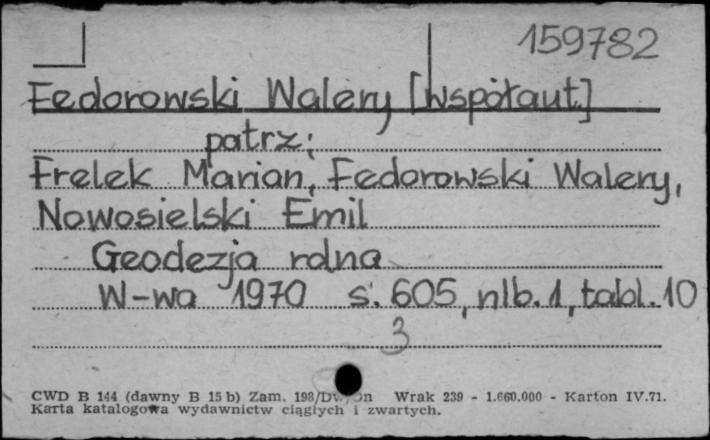 159782
Fedorowski Walery [współaut.]
patrz:
Frelek Marian, Fedorowski Walery,
Nowosielski Emil
Geodezja rolna
W-wa 1970 s. 605, nlb. 1, tabl. 10
3
CWD B 144 (dawny B 15 b) Zam. 198/ Wrak 239 - 1.660.000 - Karton IV.71.
Karta katalogowa wydawnictw ciągłych i zwartych.